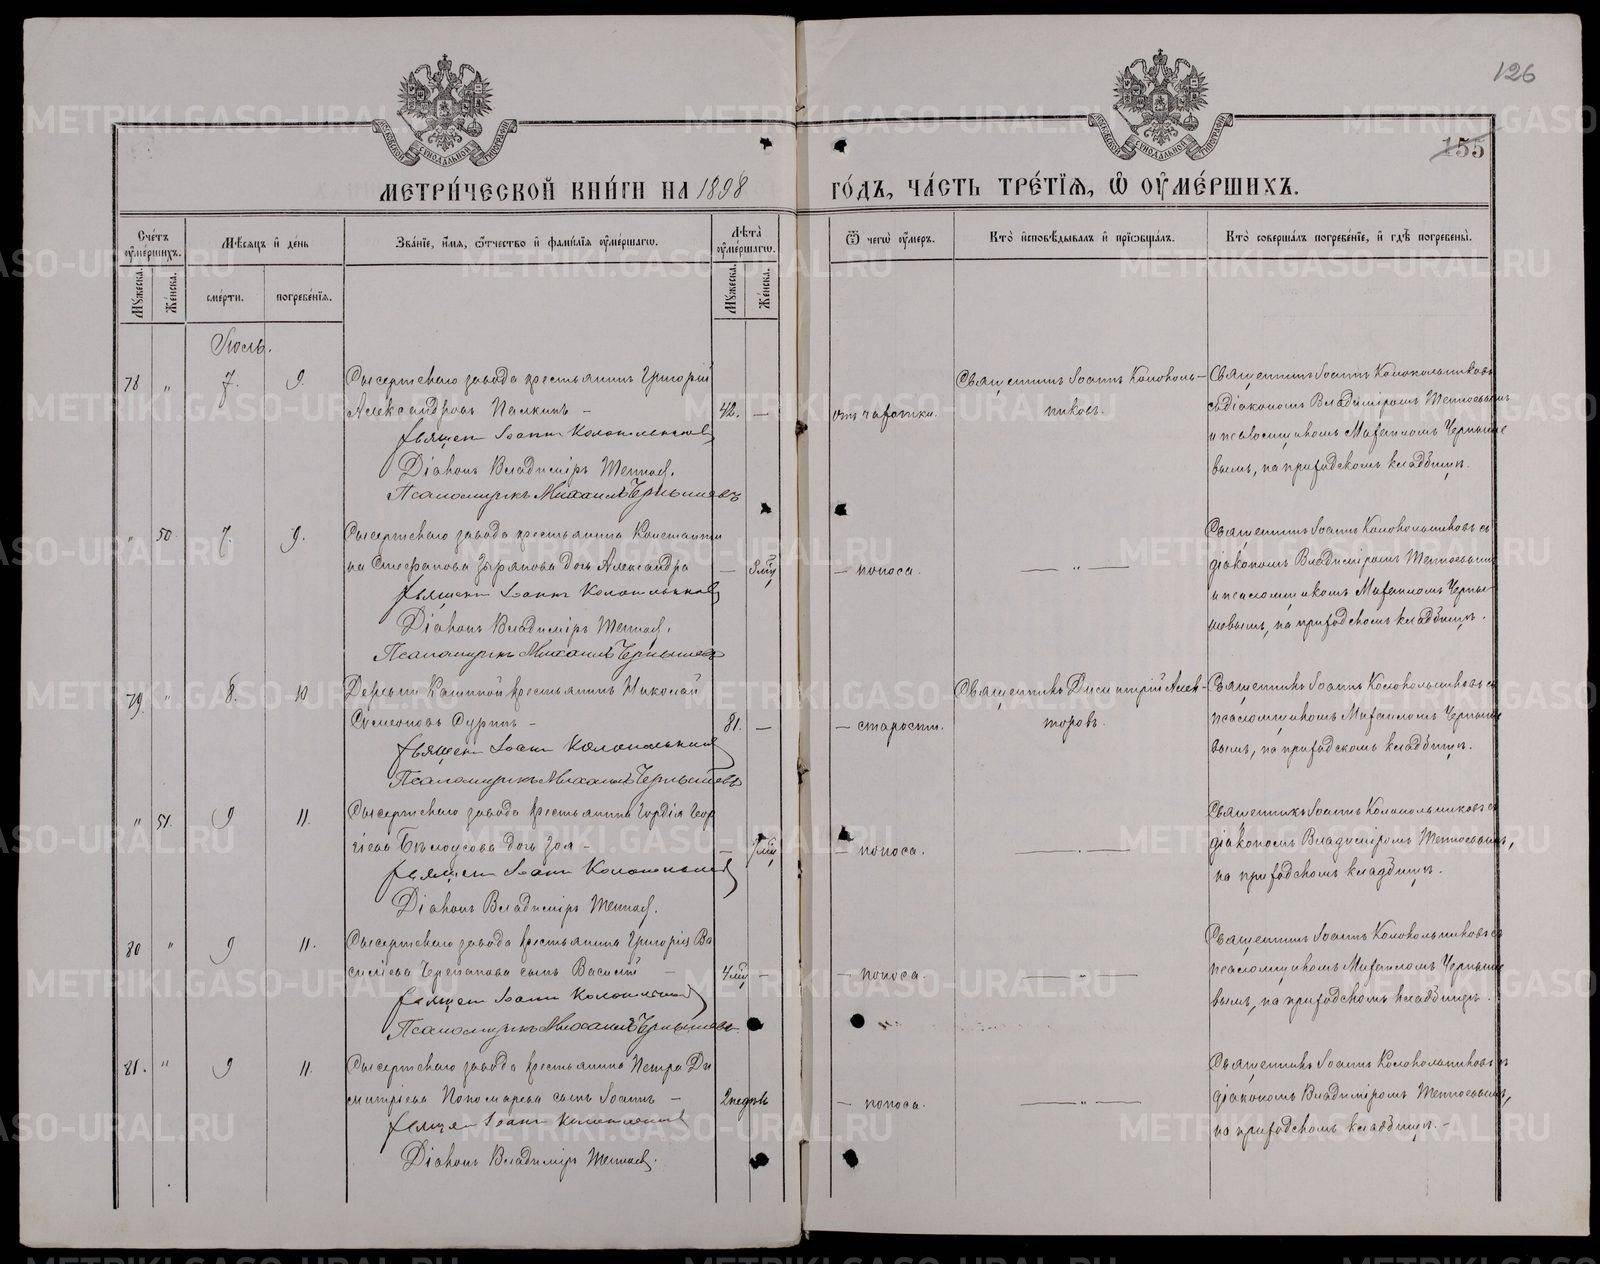 126
155
МЕТРИ́ЧЕСКОЙ КНИ́ГИ НА 1898
ГО́ДЪ, ЧА́СТЬ ТРЕ́ТІѦ, Ѡ ОУМЕ́РШИХЪ.
Сче́тъ оуме́ршихъ.
Му́жеска.
Же́нска.
Мѣ́сяцъ и де́нь
сме́рти.
погребе́нїѧ.
Зва́нїе, и́мѧ, ѻ҆́тчество и҆ фами́лїѧ оуме́ршагѡ.
Лѣта̀ оуме́ршагѡ.
Му́жеска.
Же́нска.
Ѿ чегѡ̀ оу́меръ.
Кто̀ и҆сповѣ́дывалъ и҆ прїѡбща́лъ.
Кто̀ соверша́лъ погребе́нїе, и҆ гдѣ̀ погребены̀.
Іюль.
78 " 7. 9.
Сысертскаго завода крестьянинъ Григорій
Александровъ Палкинъ – 42. —
Священ Іоанн Колокольников
Діаконъ Владиміръ
Псаломщикъ Михаилъ Чернышевъ
отъ чахотки.
Священникъ Іоаннъ Колоколь-
никовъ.
Священникъ Іоаннъ Колокольниковъ
съ діакономъ Владиміромъ
и псаломщикомъ Михаиломъ Черныше
вымъ, на приходскомъ кладбищѣ.
" 50. 7. 9.
Сысертскаго завода крестьянина Константи
на Стефанова Зырянова дочь Александра —
Священ Іоанн Колокольников
Діаконъ Владиміръ
Псаломщикъ Михаилъ Чернышевъ
— поноса.
— " —
Священникъ Іоаннъ Колокольниковъ съ
діакономъ Владиміромъ
и псаломщикомъ Михаиломъ Черны-
шевымъ, на приходскомъ кладбищѣ.
79. " 8. 10
Деревни Кашиной крестьянинъ Николай
Симеоновъ Суринъ – 81. —
Священ Іоанн Колокольников
Псаломщикъ Михаилъ Чернышевъ
— старости.
Священникъ Димитрій
Священникъ Іоаннъ Колокольниковъ съ
псаломщикомъ Михаиломъ Черныше
вымъ, на приходскомъ кладбищѣ.
" 51. 9 11.
Сысертскаго завода крестьянина Гурдія Геор
гіева Бѣлоусова дочь Зоя –
Священ Іоанн Колокольников
Діаконъ Владиміръ
— поноса.
— " —
Священникъ Іоаннъ Колокольниковъ съ
діакономъ Владиміромъ
на приходскомъ кладбищѣ.
80 " 9 11.
Сысертскаго завода крестьянина Григорія Ва
силіева Черепанова сынъ Василій – 4 мѣс –
Священ Іоанн Колокольников
Псаломщикъ Михаилъ Чернышевъ
— поноса.
— " —
Священникъ Іоаннъ Колокольниковъ съ
псаломщикомъ Михаиломъ Черныше
вымъ, на приходскомъ кладбищѣ.
81. " 9 11.
Сысертскаго завода крестьянина Петра Ди
митріева Пономарева сынъ Іоаннъ – 2 недѣль
Священ Іоанн Колокольников
Діаконъ Владиміръ
— поноса.
— " —
Священникъ Іоаннъ Колокольниковъ съ
діакономъ Владиміромъ
на приходскомъ кладбищѣ. –
METRIKI.GASO-URAL.RU